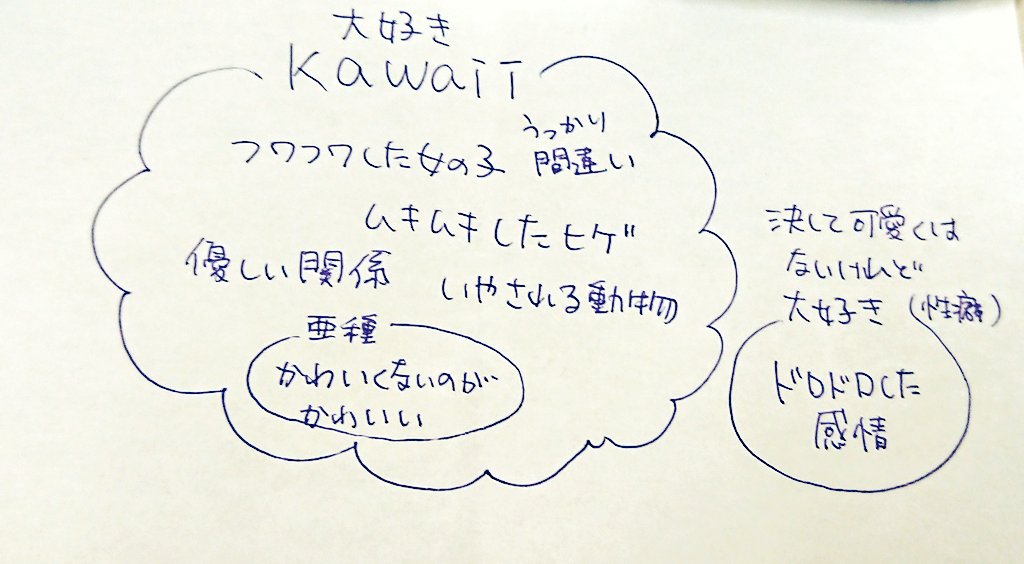 大好き
Kawaii
フワフワした女の子
うっかり
間違い
ムキムキしたヒゲ
優しい関係
いやされる動物
亜種
かわいくないのが
かわいい
決して可愛くは
ないけれど
大好き(性癖)
ドロドロした
感情